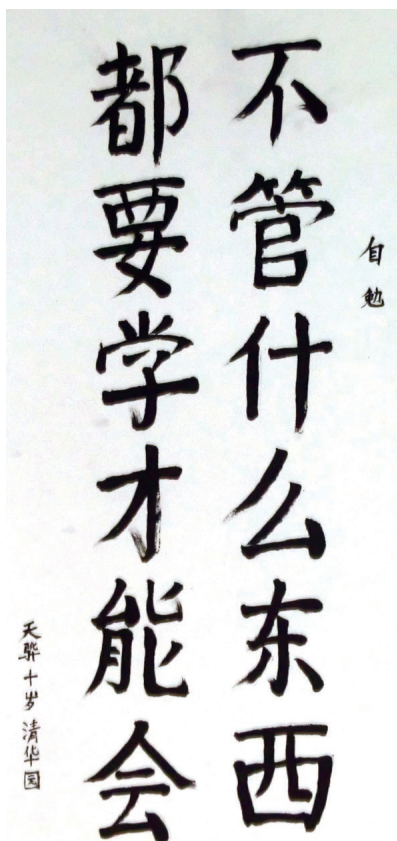 自勉
不管什么东西
都要学才能会
天骅十岁清华园